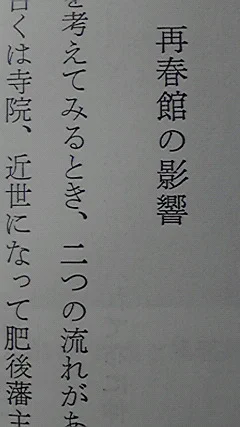 再春館の影響
を考えてみるとき、二つの流れがあ
くは寺院、近世になって肥後藩主